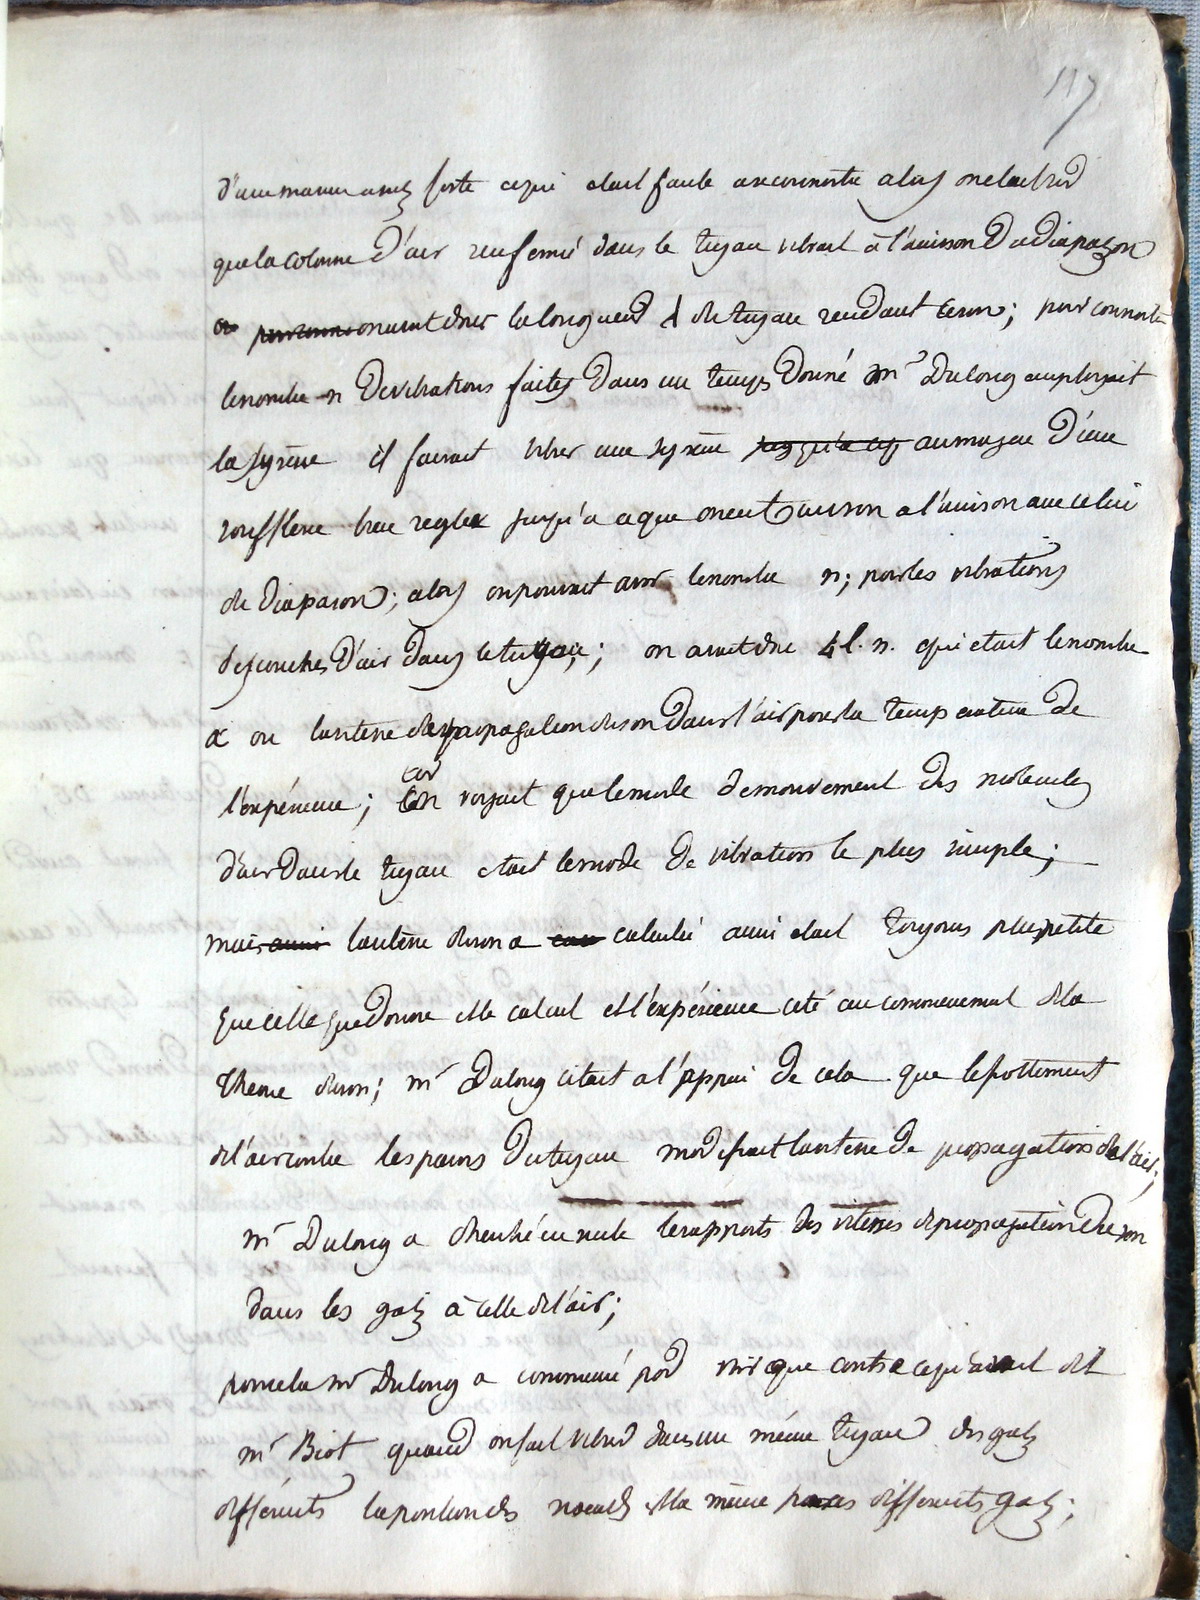 117
d'une maniere assez forte ce qui etait facile a reconnoitre alors on etait sur
que la colonne d'air renfermé dans le tuyau vibrait à l'unisson du diapazon
on avait donc la longueur l de tuyau rendant ce son; pour connoitre
le nombre n de vibrations faites dans un temps donné mr Dulong employait
la syrene il faisait vibrer une syrene jusqu'a ce au moyen d'une
soufflerie bien reglee jusqu'a ce que on eut un son a l'unison avec celui
de diapason; alors on pouvait avoir le nombre n; pour les vibrations
des couches d'air dans le tuyau; on avait donc 4 l. n. qui etait le nombre
x ou la vitesse de propagation du son dans l'air pour la temperature de
l'expérience; car l'on voyait que le mode de mouvement des molecules
d'air dans le tuyau etait le mode de vibration le plus simple;
mais aussi la vitesse du son a calculée ainsi etait toujours plus petite
que celle que donne et le calcul et l'expérience cité au commencement de la
theorie du son; mr Dulong citait a l'appui de cela que le frottement
de l'air contre les parois du tuyau modifiait la vitesse de propagation de l'air;
mr Dulong a cherché ensuite les rapports des vitesses de propagation du son
dans les gaz à celle de l'air;
pour cela mr Dulong a commencé par voir que contre ce qu'avait dit
mr Biot quand on fait vibrer dans un même tuyau des gaz
différents la position des noeuds est la même pour les differents gaz;